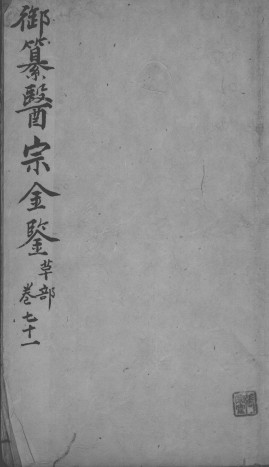 御纂醫宗金鑒
草部
卷七十一